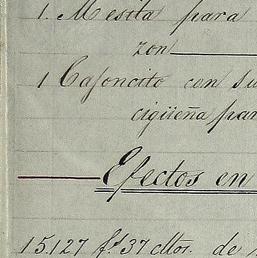 1. Mesita para
zon
1 Cajoncito con su
cigüeña par
Efectos en
15.127 fs 37 cttor. de